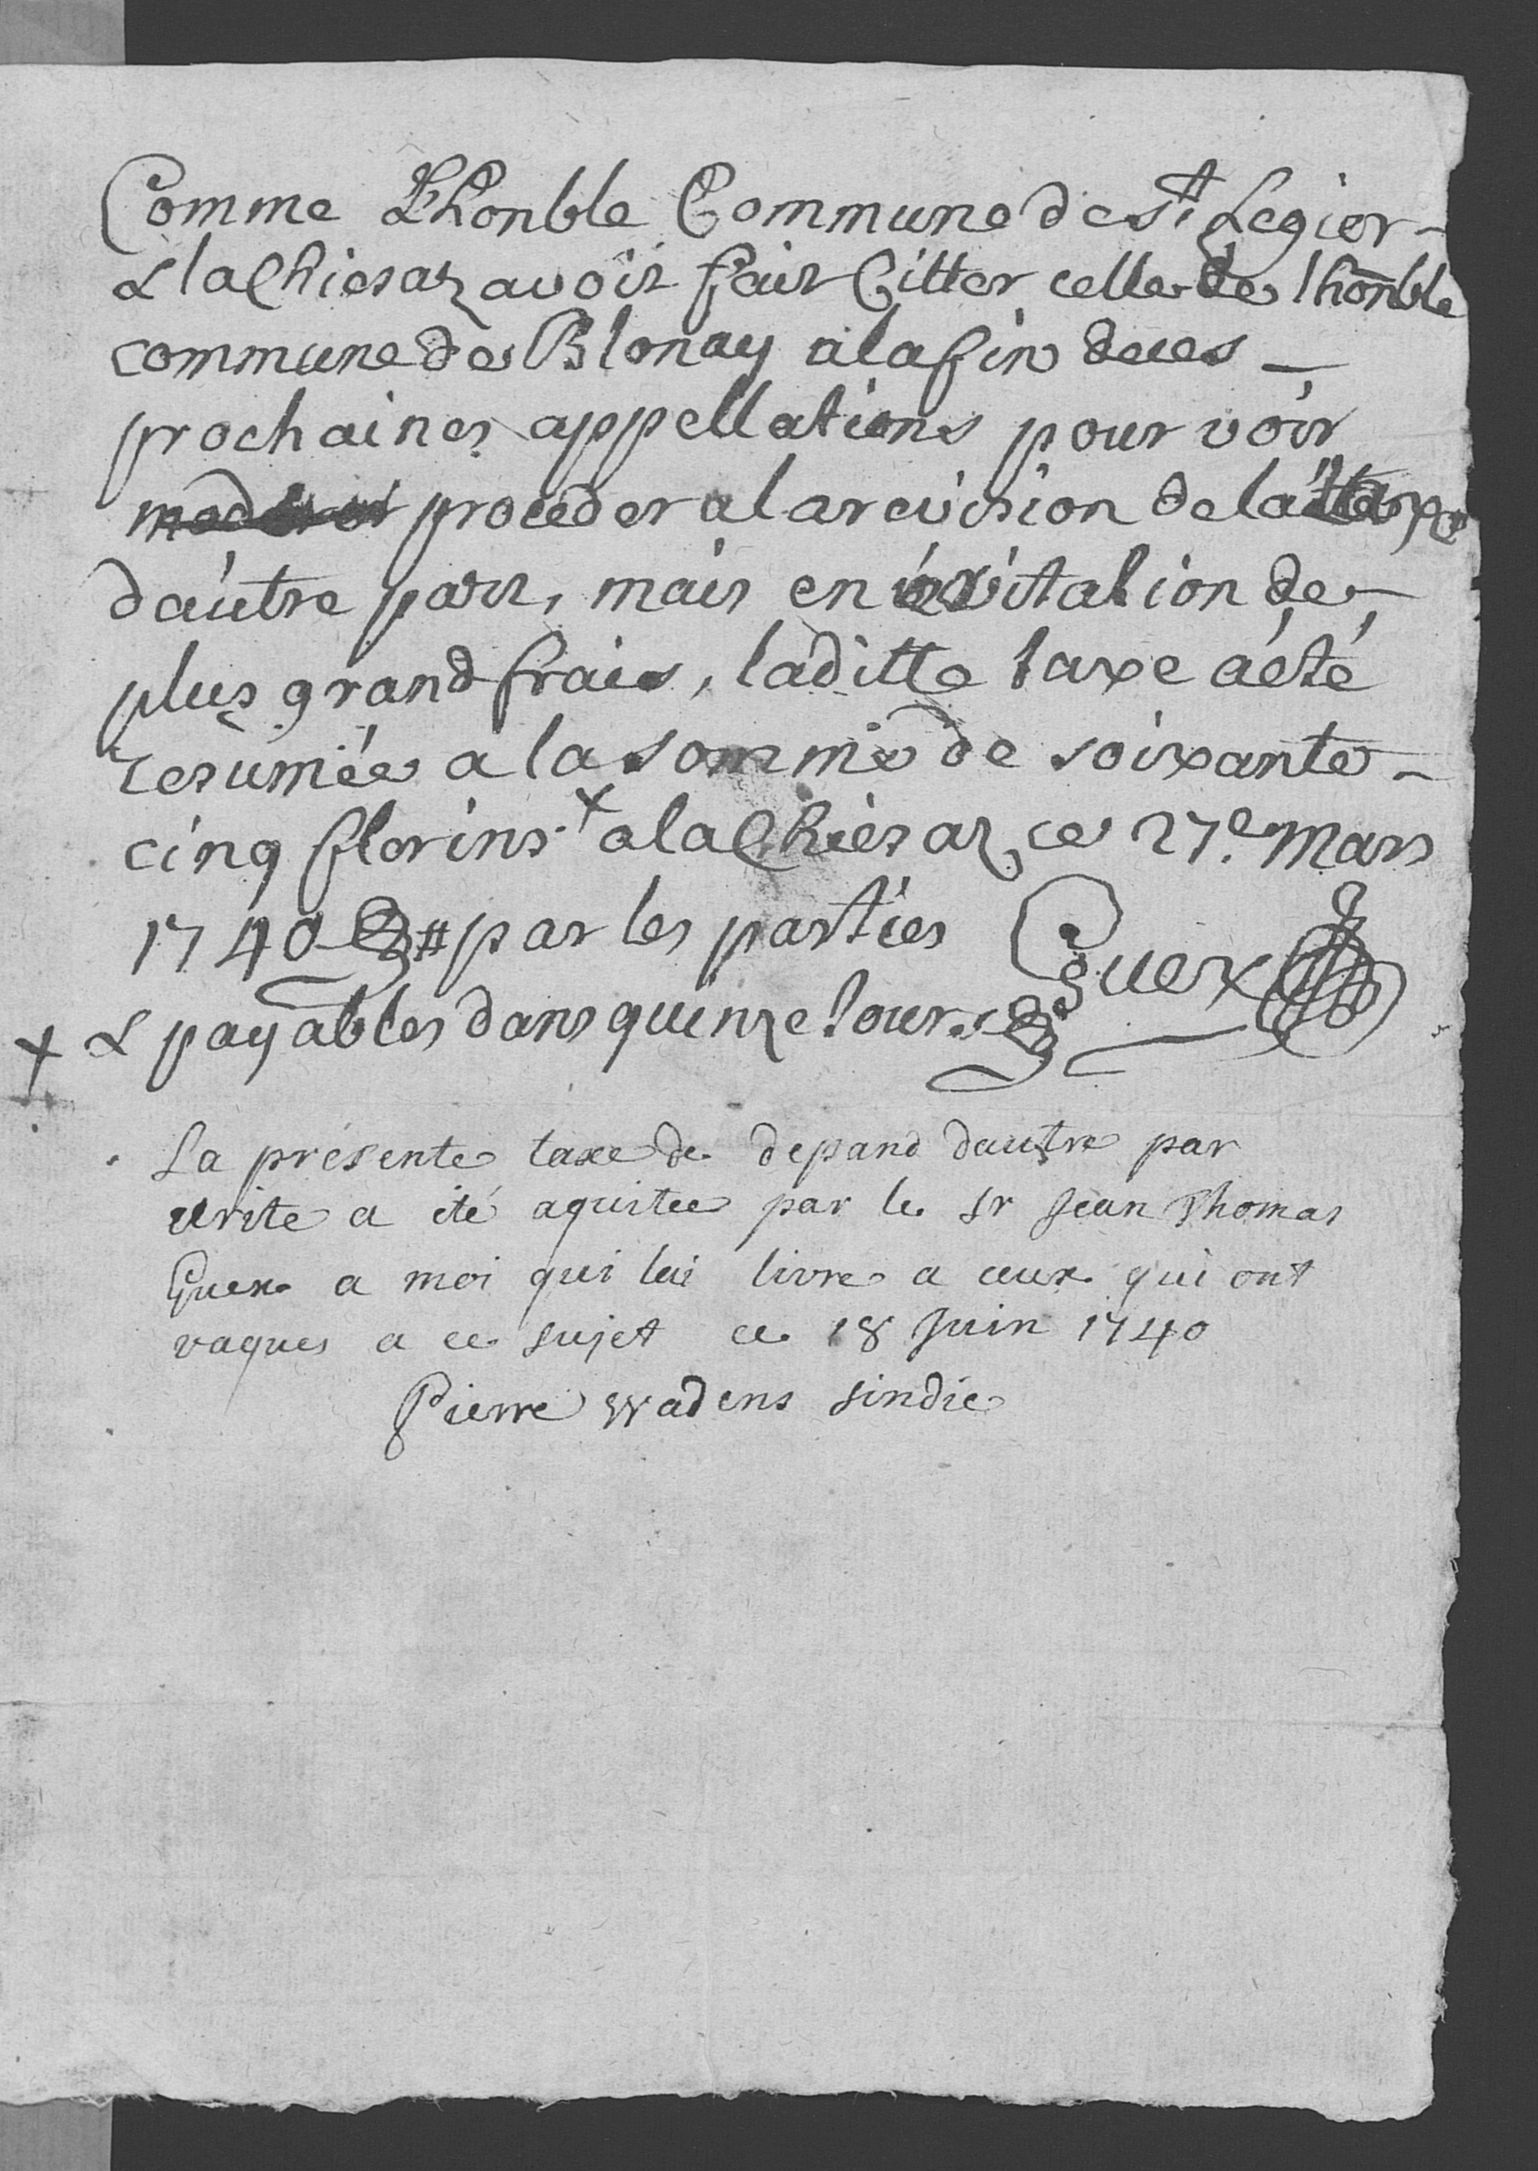 Comme Lhonble Commune de St Legier
& la Chiesaz avoit fait Citter celle de lhonble
commune de Blonay a la fin de ces
prochaines appellations pour voir
proceder a la revision de la taxe
dautre part, mais en évitation de
plus grand frais, laditte taxe a été
resumée a la somme de soixante
cinq florins + a la Chiesaz ce 27.e Mars
1740 # par les parties Guex
+ & payables dans quinze Jours
La présente taxe de depand dautre par
ecrite a été aquitee par le Sr Jean Thomas
Guex a moi qui lai livre a ceux qui ont
vaques a ce sujet ce 18 Juin 1740
Pierre Wadens sindic